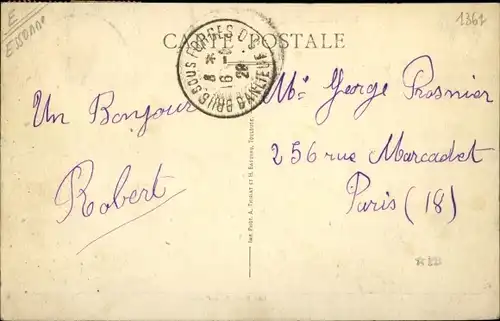 E
ESSONNE
1361
CARTE POSTALE
BRIIS-SOUS-FORGES
8
16
28
Un Bonjour
Robert
Mr George Prosnier
256 rue Marcadet
Paris (18)